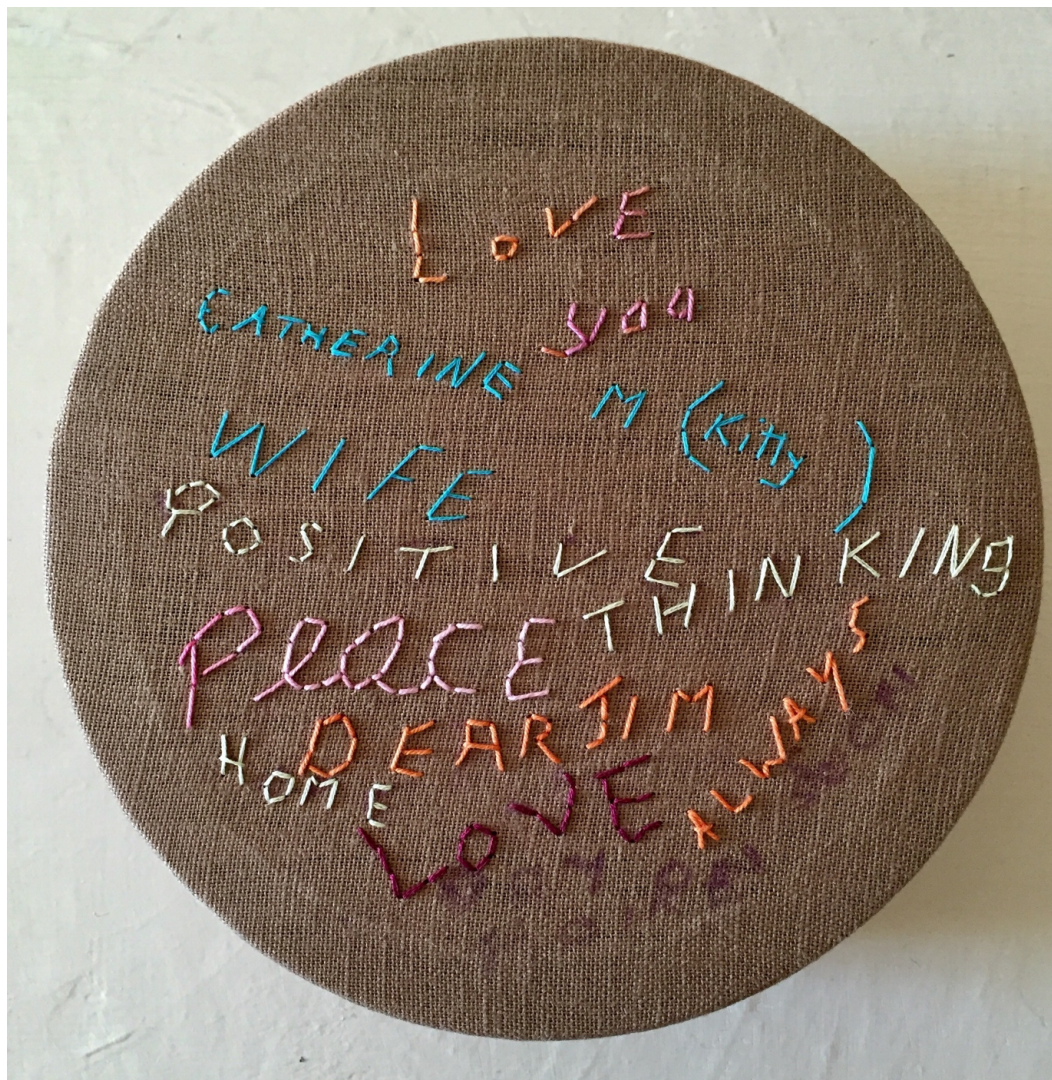 LovE
you
CATHERINE M (Kitty)
WIFE
POSITIVE THINKING
PeaCE
DEAR JIM
ALWAYS
HOME
LOVE